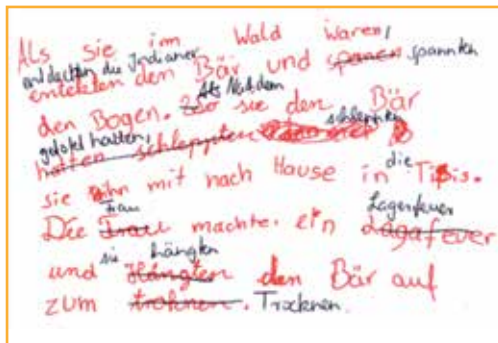 Als sie im Wald waren,
entdeckten die Indianer
entekten den Bär und spanen spannten
den Bogen. Als Nachdem sie den Bär
getötet hatten, schleppten
hatten schleppten
sie ihn mit nach Hause in die Tipis.
Frau Lagerfeuer
Die Trau machte ein Lagafever
sie hängten
und Hängten den Bär auf
zum troknen. Trocknen.